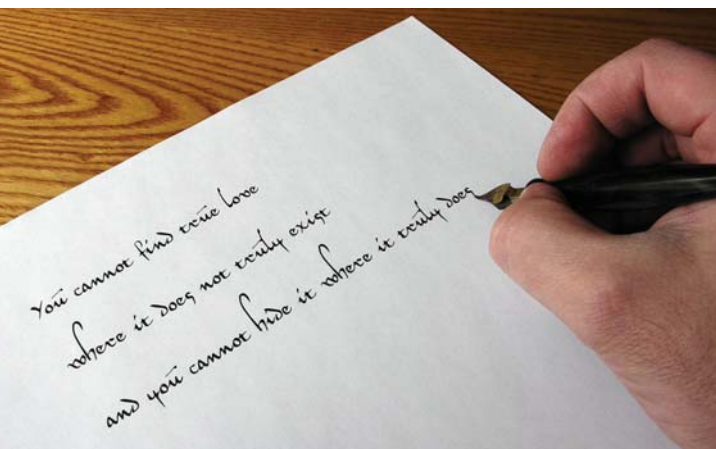 You cannot find true love
where it does not truly exist
and you cannot hide it where it truly does